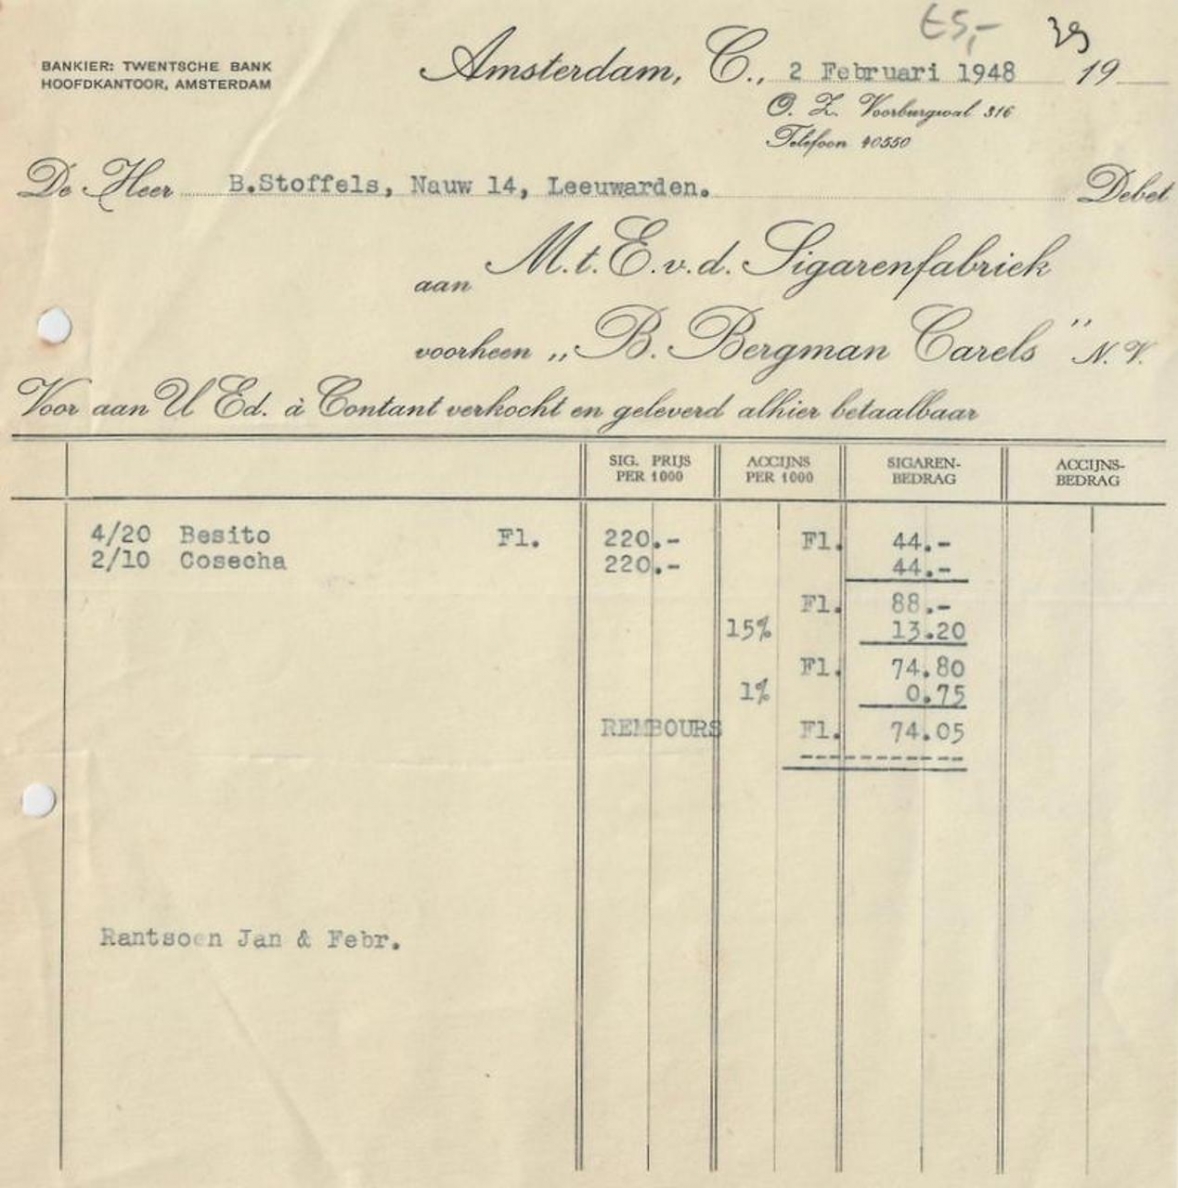 €5,-
39
BANKIER: TWENTSCHE BANK
HOOFDKANTOOR, AMSTERDAM
Amsterdam, C., 2 Februari 1948 19
O. Z. Voorburgwal 316
Telefoon 40550
De Heer B.Stoffels, Nauw 14, Leeuwarden. Debet
aan M.t.E.v.d. Sigarenfabriek
voorheen „B. Bergman Carels" N.V.
Voor aan U Ed. à Contant verkocht en geleverd alhier betaalbaar
SIG. PRIJS PER 1000 ACCIJNS PER 1000 SIGAREN-BEDRAG ACCIJNS-BEDRAG
4/20 Besito Fl. 220.- Fl. 44.-
2/10 Cosecha 220.- 44.-
Fl. 88.-
15% 13.20
Fl. 74.80
1% 0.75
REMBOURS Fl. 74.05
Rantsoen Jan & Febr.